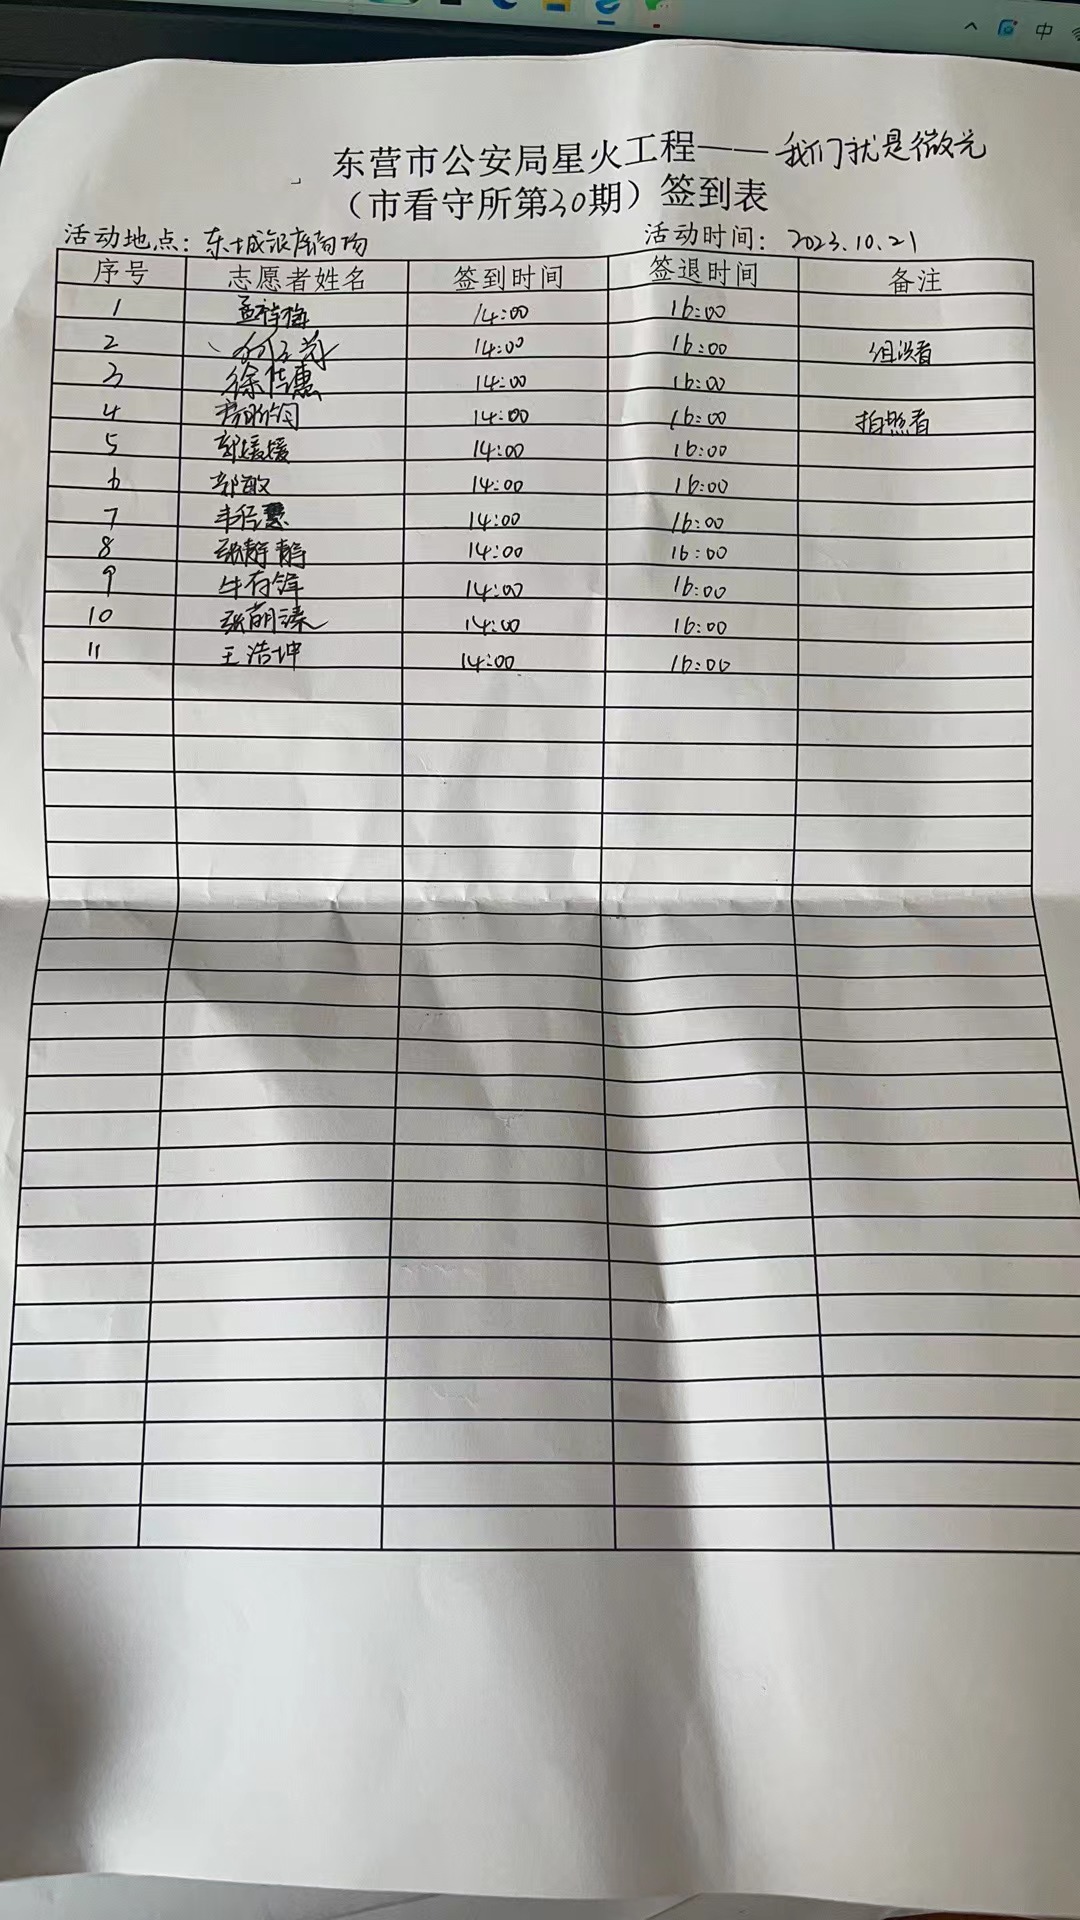 中
东营市公安局星火工程——我们就是微光
（市看守所第30期）签到表
活动地点：东城银座商场 活动时间：2023.10.21
序号 志愿者姓名 签到时间 签退时间 备注
1 孟祥梅 14:00 16:00
2 14:00 16:00 组织者
3 徐佳惠 14:00 16:00
4 14:00 16:00 拍照者
5 郭媛媛 14:00 16:00
6 郭敏 14:00 16:00
7 14:00 16:00
8 张静静 14:00 16:00
9 牛存锋 14:00 16:00
10 张萌臻 14:00 16:00
11 王浩坤 14:00 16:00